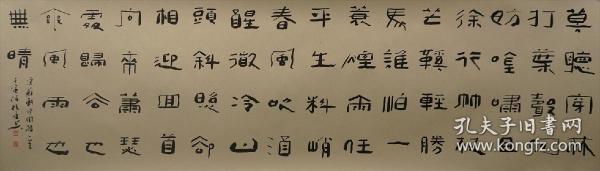 莫聽穿林
打葉聲何
妨吟嘯且
徐行竹杖
芒鞵輕勝
馬誰怕一
蓑煙雨任
平生料峭
春風吹酒
醒微冷山
頭斜照卻
相迎回首
向來蕭瑟
處歸去也
無風雨也
無晴
孔夫子旧书网
www.kongfz.com